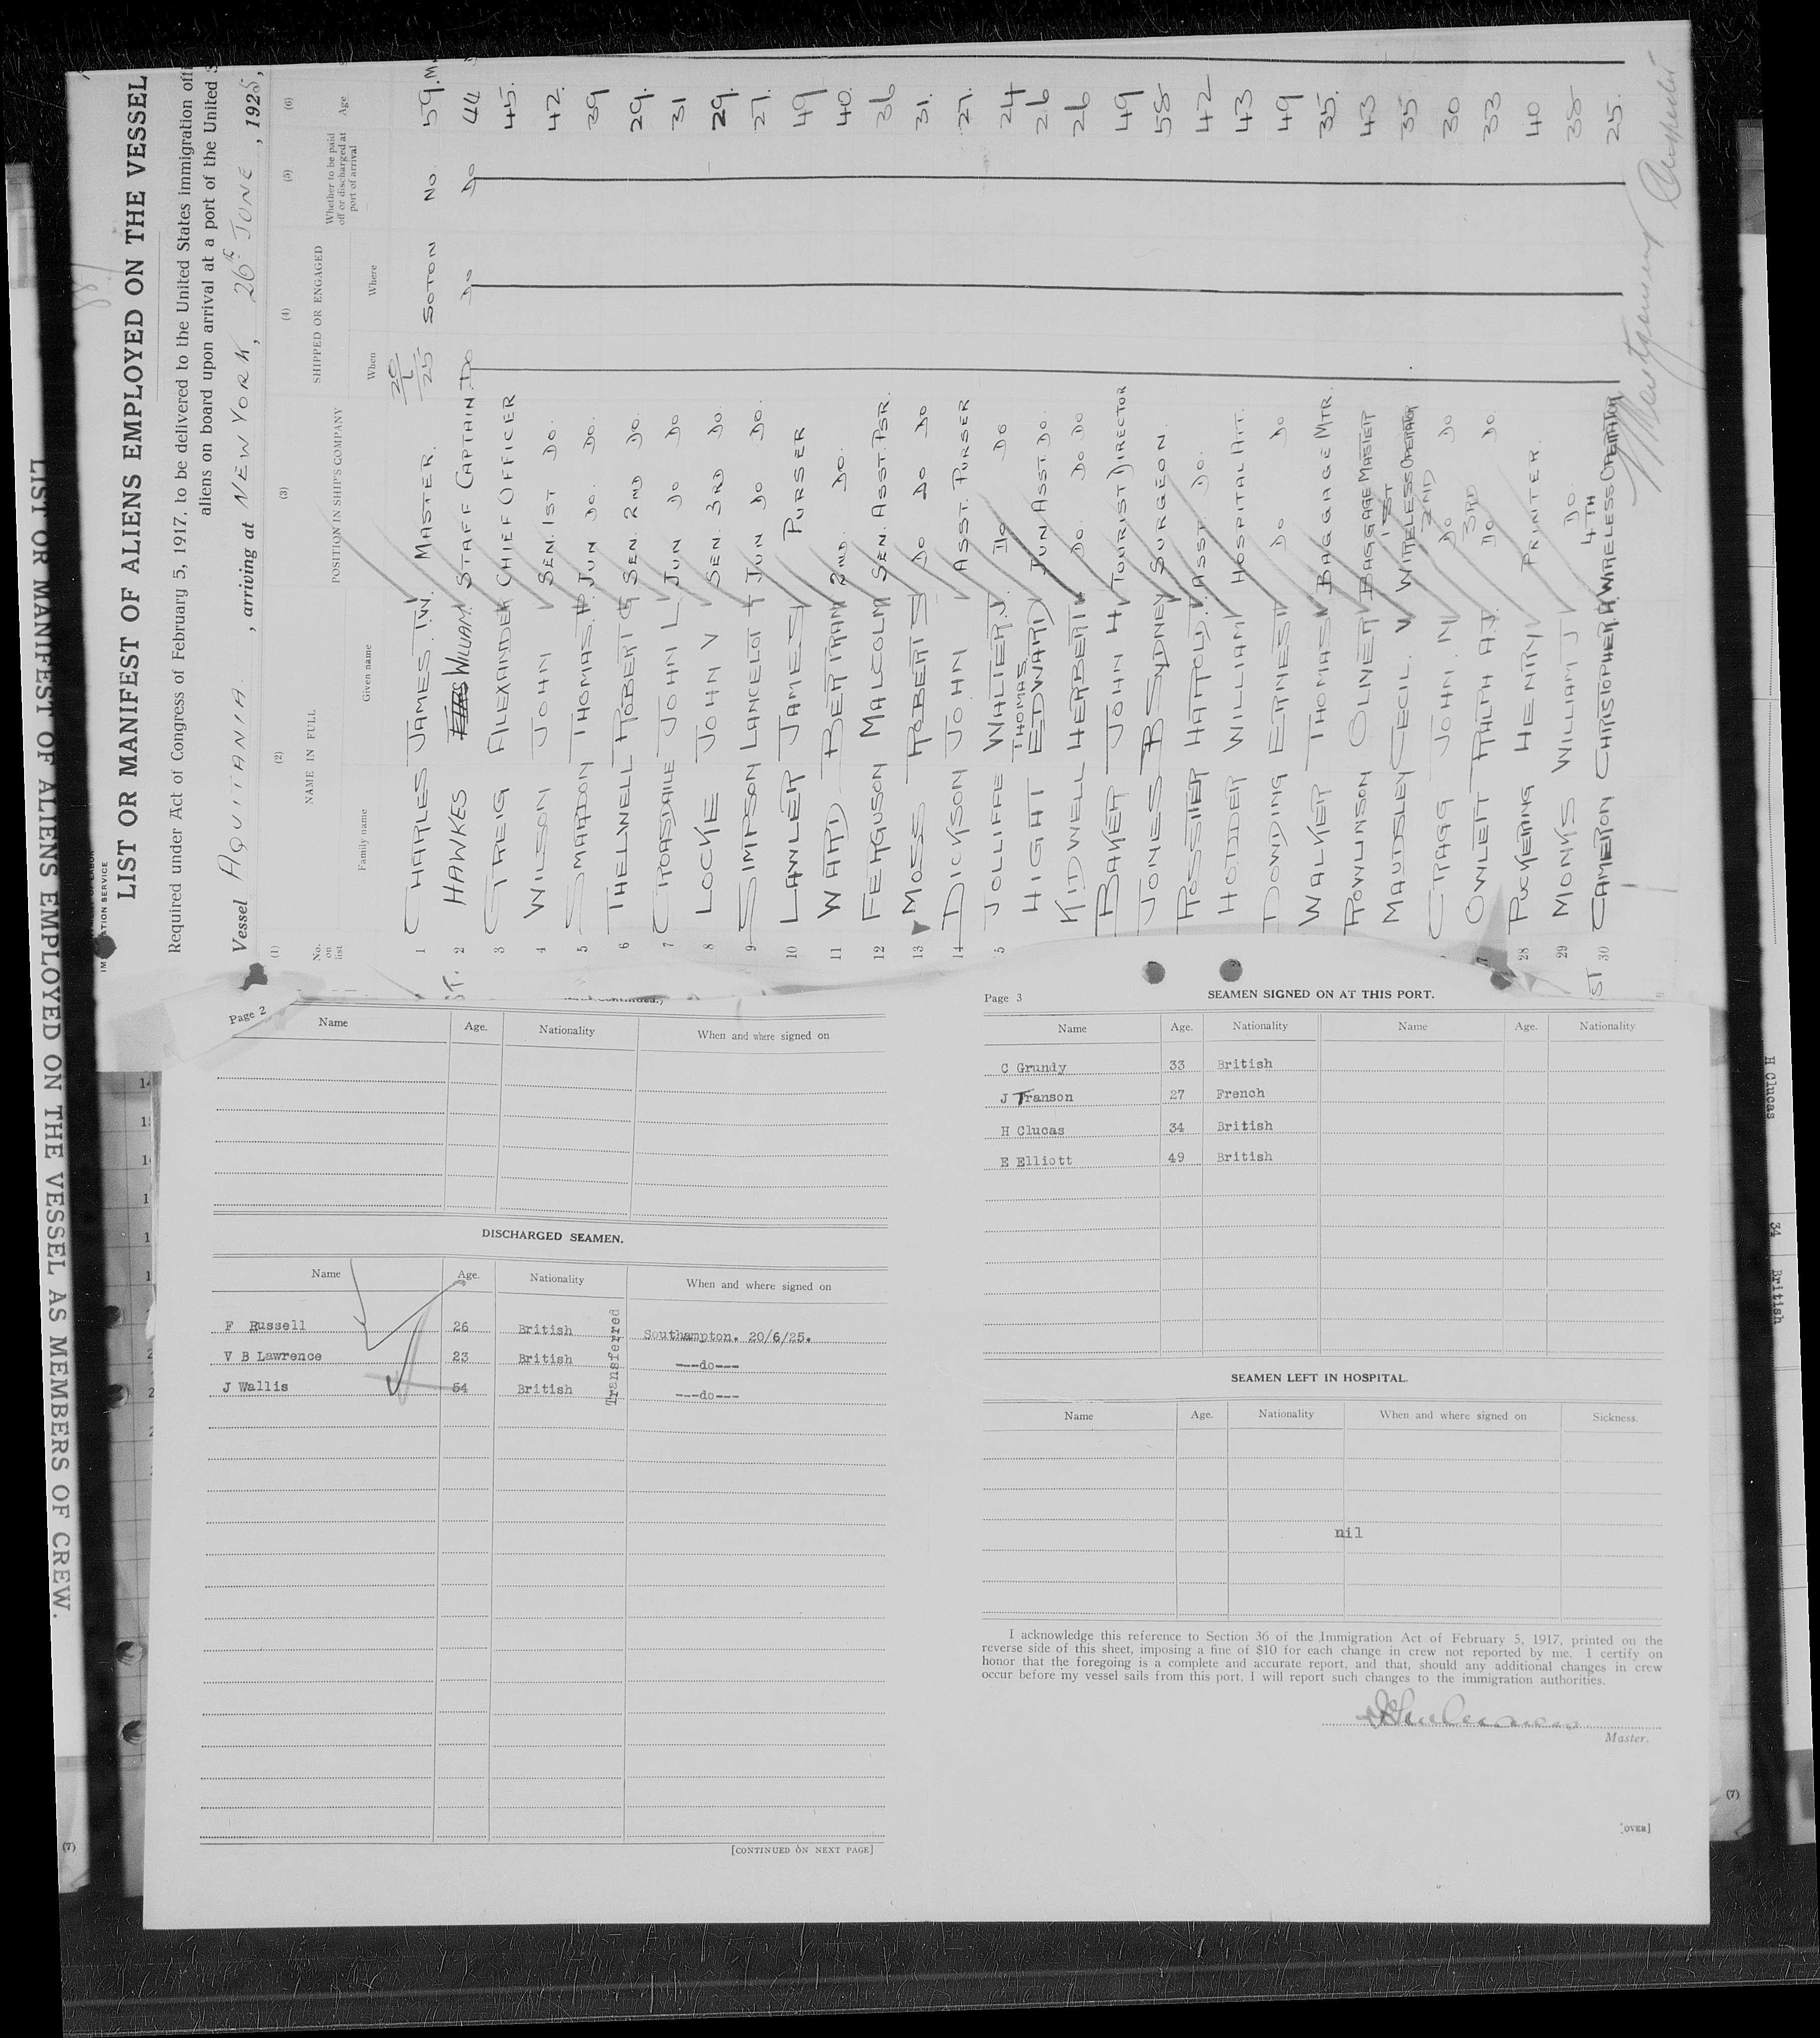 LIST OR MANIFEST OF ALIENS EMPLOYED ON THE VESSEL AS MEMBERS OF CREW.
IMMIGRATION SERVICE
LIST OR MANIFEST OF ALIENS EMPLOYED ON THE VESSEL
Required under Act of Congress of February 5, 1917, to be delivered to the United States immigration
aliens on board upon arrival at a port of the United
Vessel AQUITANIA, arriving at NEW YORK, 26th JUNE, 1925,
(1) (2) (3) (4) (5) (6)
No. on list NAME IN FULL POSITION IN SHIP'S COMPANY SHIPPED OR ENGAGED Whether to be paid off or discharged at port of arrival Age
Family name Given name When Where
1 CHARLES JAMES. T.W. MASTER. 20/6/25 SOTON NO. 59.
2 HAWKES WILLIAM. STAFF CAPTAIN. DO DO DO 44
3 GREIG ALEXANDER CHIEF OFFICER 45.
4 WILSON JOHN SEN. 1ST DO. 42.
5 SMARDON THOMAS. H. JUN DO. DO. 39
6 THELWELL ROBERT G SEN. 2ND DO. 29.
7 CROASDAILE JOHN L JUN DO DO 31
8 LOCKE JOHN V SEN. 3RD DO. 29.
9 SIMPSON LANCELOT T JUN DO DO. 27.
10 LAWLER JAMES PURSER 49
11 WARD BERTRAM 2ND. DO. 40.
12 FERGUSON MALCOLM SEN. ASST. PSR. 36
13 MOSS ROBERT S DO DO DO 31.
14 DICKSON JOHN ASST. PURSER 27.
5 JOLLIFFE WALTER. J. DO DO 24
HIGHT THOMAS. EDWARD JUN ASST. DO. 26
KIDWELL HERBERT DO. DO DO 26
BAKER JOHN H TOURIST DIRECTOR 49
JONES B SYDNEY SURGEON. 58
ROSSITER HAROLD. ASST. DO. 42
HODDER WILLIAM HOSPITAL ATT. 43
DOWDING ERNEST DO DO 49
WALKER THOMAS BAGGAGE MTR. 35.
ROWLINSON OLIVER BAGGAGE MASTER 43
MAUDSLEY CECIL. W 1ST WIRELESS OPERATOR 35.
CRAGG JOHN. N 2ND DO DO 30
OWLETT RALPH A.J. 3RD DO DO. 33
28 PICKERING HENRY PRINTER. 40
29 MONKS WILLIAM J DO. 38
30 CAMERON CHRISTOPHER. A. 4TH WIRELESS OPERATOR 25.
ST.
ST
Montgomery Inspector
Page 2
Name Age. Nationality When and where signed on
DISCHARGED SEAMEN.
Name Age. Nationality When and where signed on
F Russell 26 British Southampton. 20/6/25.
V B Lawrence 23 British ---do---
J Wallis 54 British ---do---
Transferred
[CONTINUED ON NEXT PAGE]
Page 3 SEAMEN SIGNED ON AT THIS PORT.
Name Age. Nationality Name Age. Nationality
C Grundy 33 British
J Transon 27 French
H Clucas 34 British
E Elliott 49 British
SEAMEN LEFT IN HOSPITAL.
Name Age. Nationality When and where signed on Sickness.
nil
I acknowledge this reference to Section 36 of the Immigration Act of February 5, 1917, printed on the
reverse side of this sheet, imposing a fine of $10 for each change in crew not reported by me. I certify on
honor that the foregoing is a complete and accurate report, and that, should any additional changes in crew
occur before my vessel sails from this port, I will report such changes to the immigration authorities.
Master.
[OVER]
H Clucas 34 British
(7)
(7)